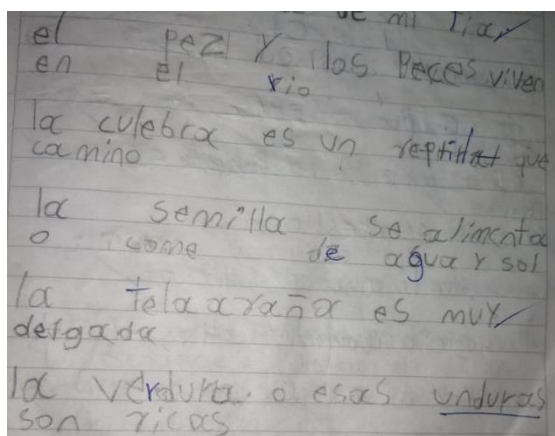 de mi tia
el pez y los peces viven
en el rio
la culebra es un reptil que
camino
la semilla se alimenta
o come de agua y sol
la telaaraña es muy
delgada
la verdura o esas unduras
son ricas